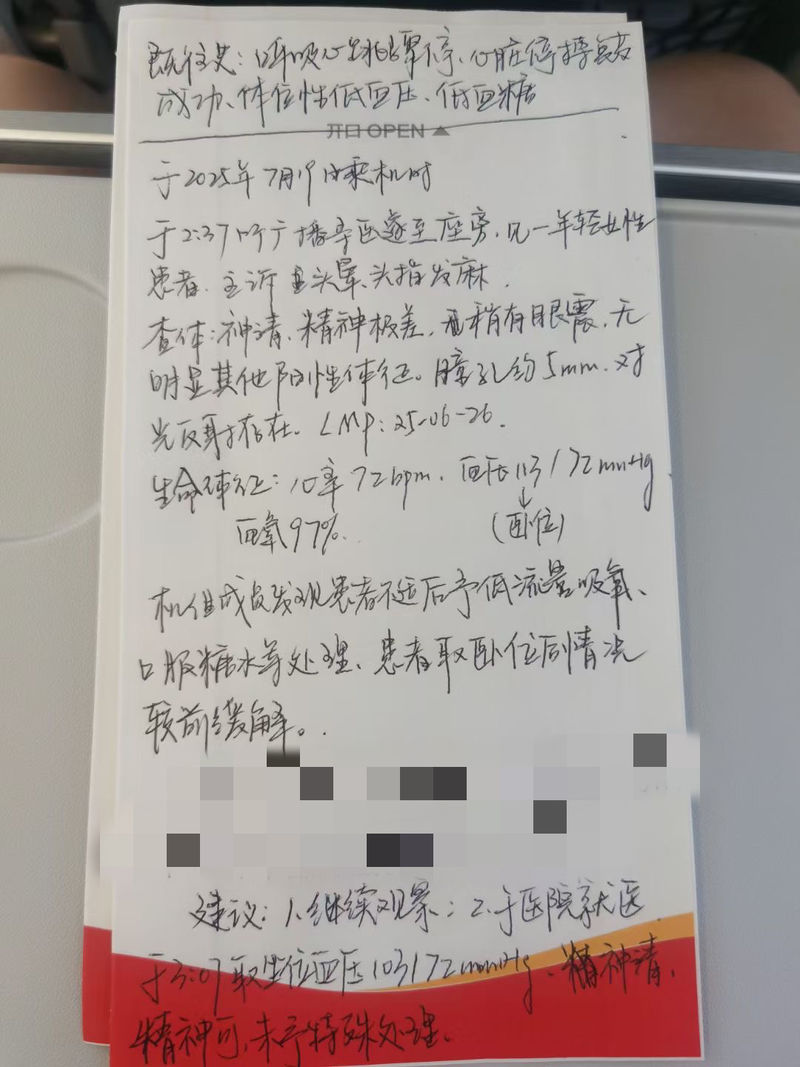 既往史：呼吸心跳骤停、心脏停搏复苏
成功、体位性低血压、低血糖
开口 OPEN
于2025年7月19日乘机时
于2:37听广播寻医遂至座旁，见一年轻女性
患者、主诉头晕、头指发麻．
查体：神清、精神极差，稍有眼震，无
明显其他阳性体征。瞳孔约5mm．对
光反射存在．LMP：25-06-26．
生命体征：心率72bpm．血压113/72mmHg
血氧97%．
(卧位)
机组成员发现患者不适后予低流量吸氧、
口服糖水等处理、患者取卧位后情况
较前缓解。
建议：1.继续观察；2.于医院就医
于3:07取坐位血压103/72mmHg、精神清，
精神可，未予特殊处理．